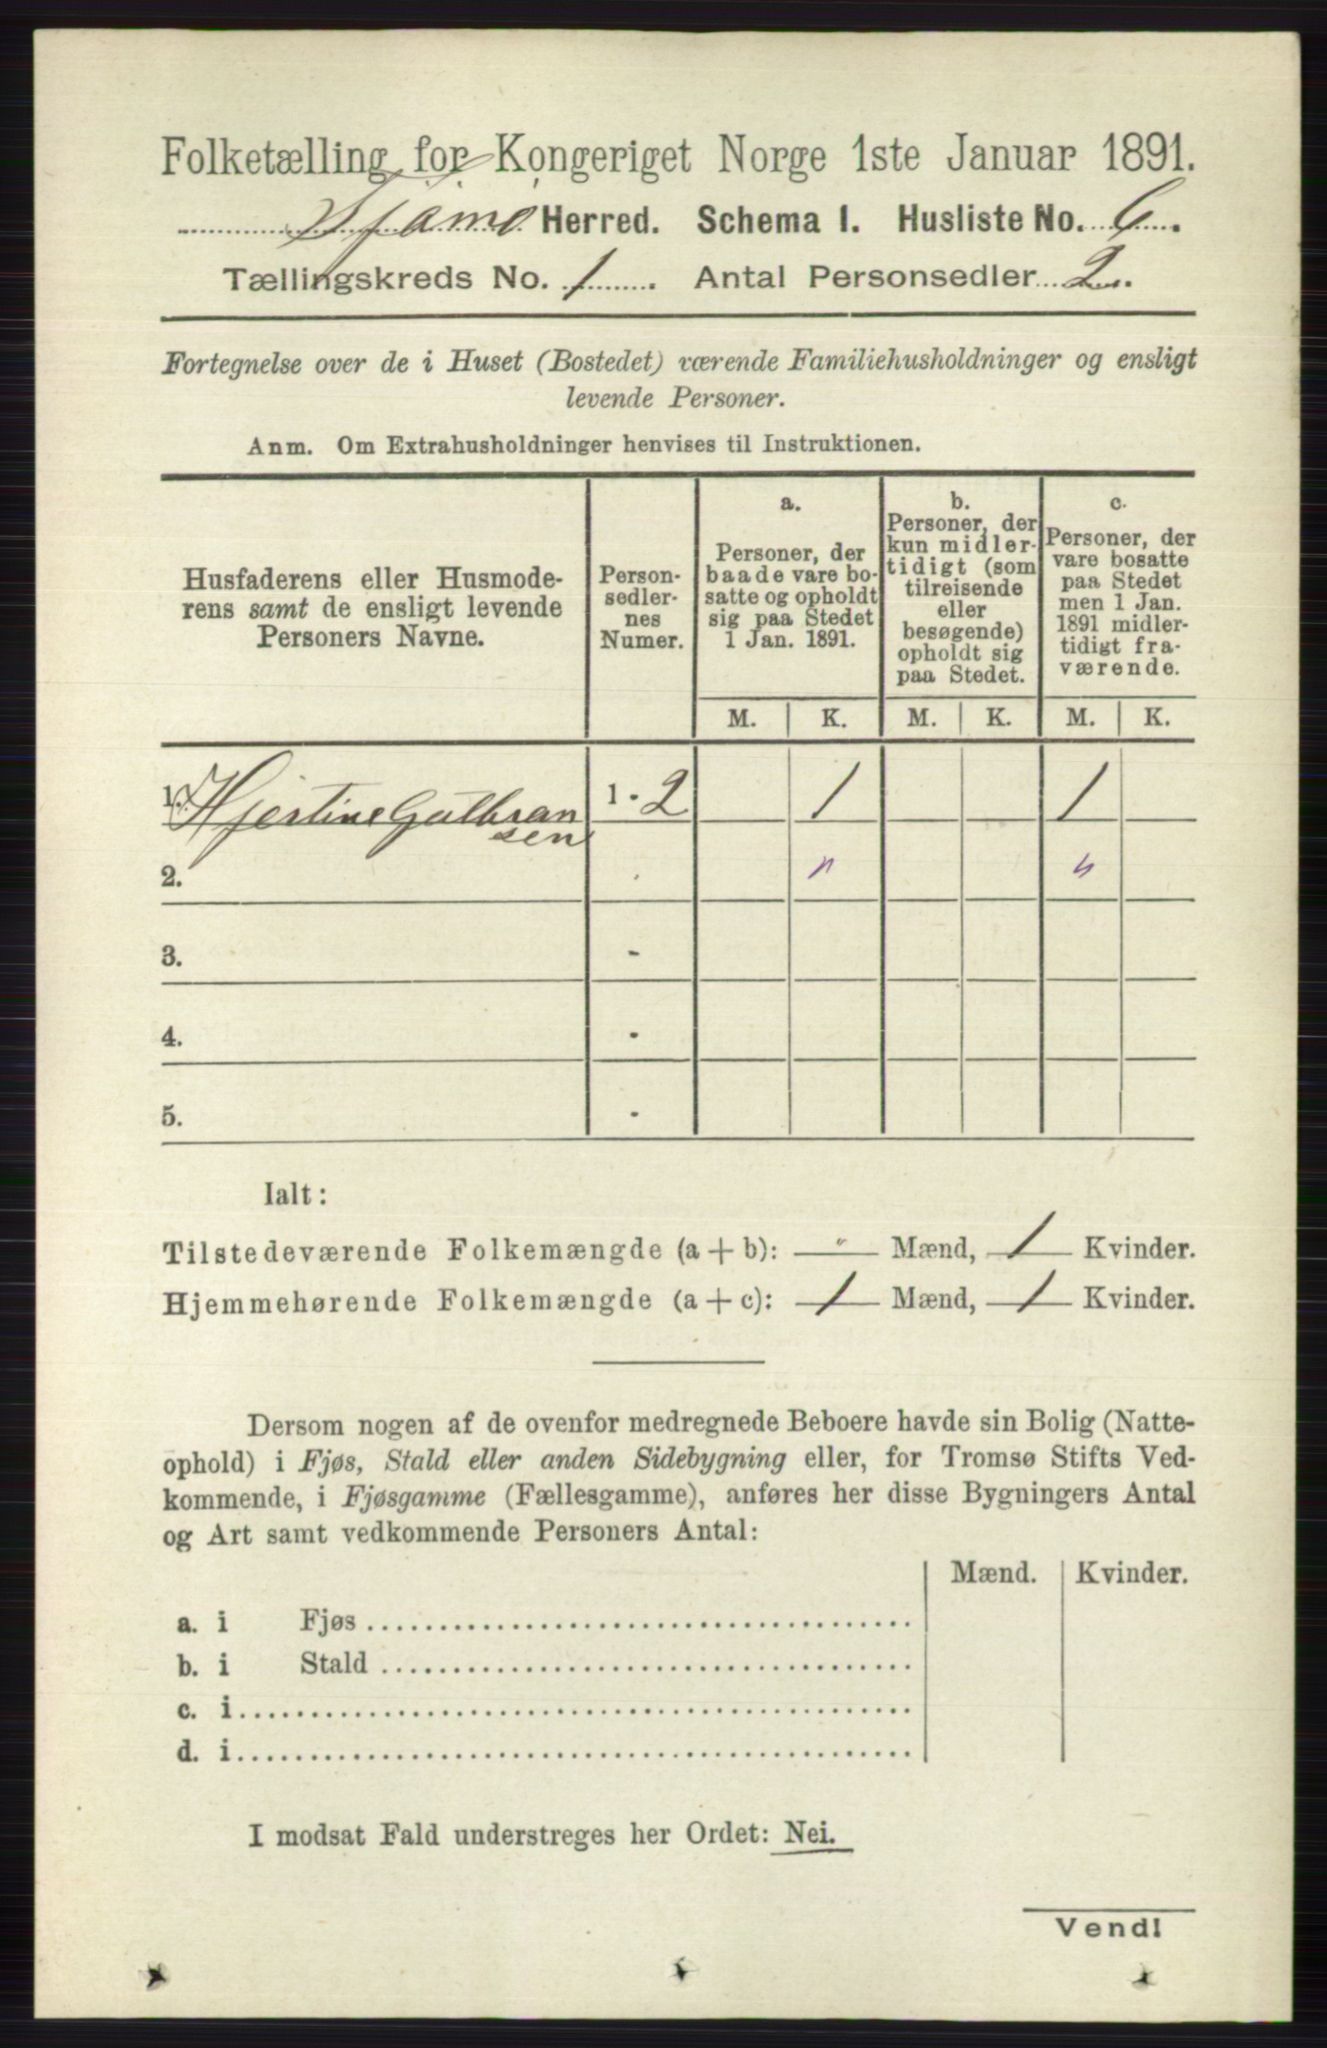 Folketælling for Kongeriget Norge 1ste Januar 1891.
Tjømø Herred. Schema 1. Husliste No. 6.
Tællingskreds No. 1. Antal Personsedler 2.
Fortegnelse over de i Huset (Bostedet) værende Familiehusholdninger og ensligt
levende Personer.
Anm. Om Extrahusholdninger henvises til Instruktionen.
Husfaderens eller Husmode-
rens samt de ensligt levende
Personers Navne.
Person-
sedler-
nes
Numer.
a.
Personer, der
baade vare bo-
satte og opholdt
sig paa Stedet
1 Jan. 1891.
b.
Personer, der
kun midler-
tidigt (som
tilreisende
eller
besøgende)
opholdt sig
paa Stedet.
c.
Personer, der
vare bosatte
paa Stedet
men 1 Jan.
1891 midler-
tidigt fra-
værende.
M. K. M. K. M. K.
1. Hjertine Gulbran 1 - 2 1 1
sen
2. - " "
3. -
4. -
5. -
Ialt:
Tilstedeværende Folkemængde (a + b): " Mænd, 1 Kvinder.
Hjemmehørende Folkemængde (a + c): 1 Mænd, 1 Kvinder.
Dersom nogen af de ovenfor medregnede Beboere havde sin Bolig (Natte-
ophold) i Fjøs, Stald eller anden Sidebygning eller, for Tromsø Stifts Ved-
kommende, i Fjøsgamme (Fællesgamme), anføres her disse Bygningers Antal
og Art samt vedkommende Personers Antal:
Mænd. Kvinder.
a. i Fjøs
b. i Stald
c. i
d. i
I modsat Fald understreges her Ordet: Nei.
Vend!